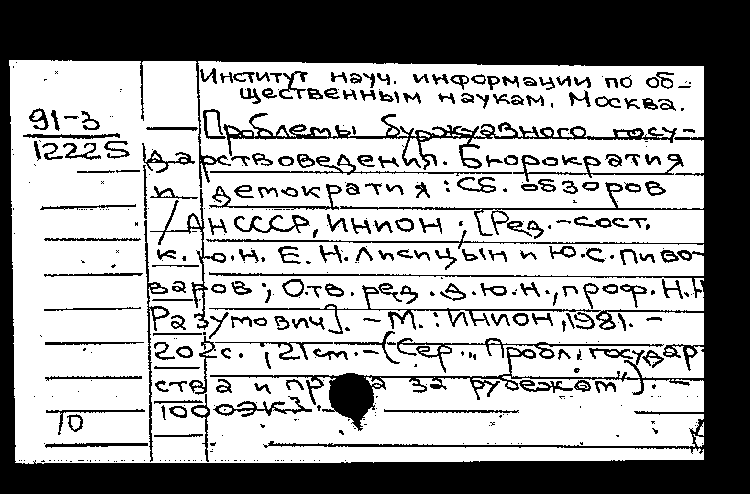 Институт науч. информации по об-
щественным наукам, Москва.
91-3
12225
Проблемы буржуазного госу-
дарствоведения. Бюрократия
и демократия: Сб. обзоров
/ АН СССР, ИНИОН; [Ред.-сост.
к.ю.н. Е.Н. Лисицын и Ю.С. Пиво-
варов; Отв. ред. д.ю.н., проф. Н.Н
Разумович]. - М.: ИНИОН, 1981. -
202с.; 21 ст. - (Сер. „Пробл. государ-
ства и за рубежом"). -
1000экз.
10